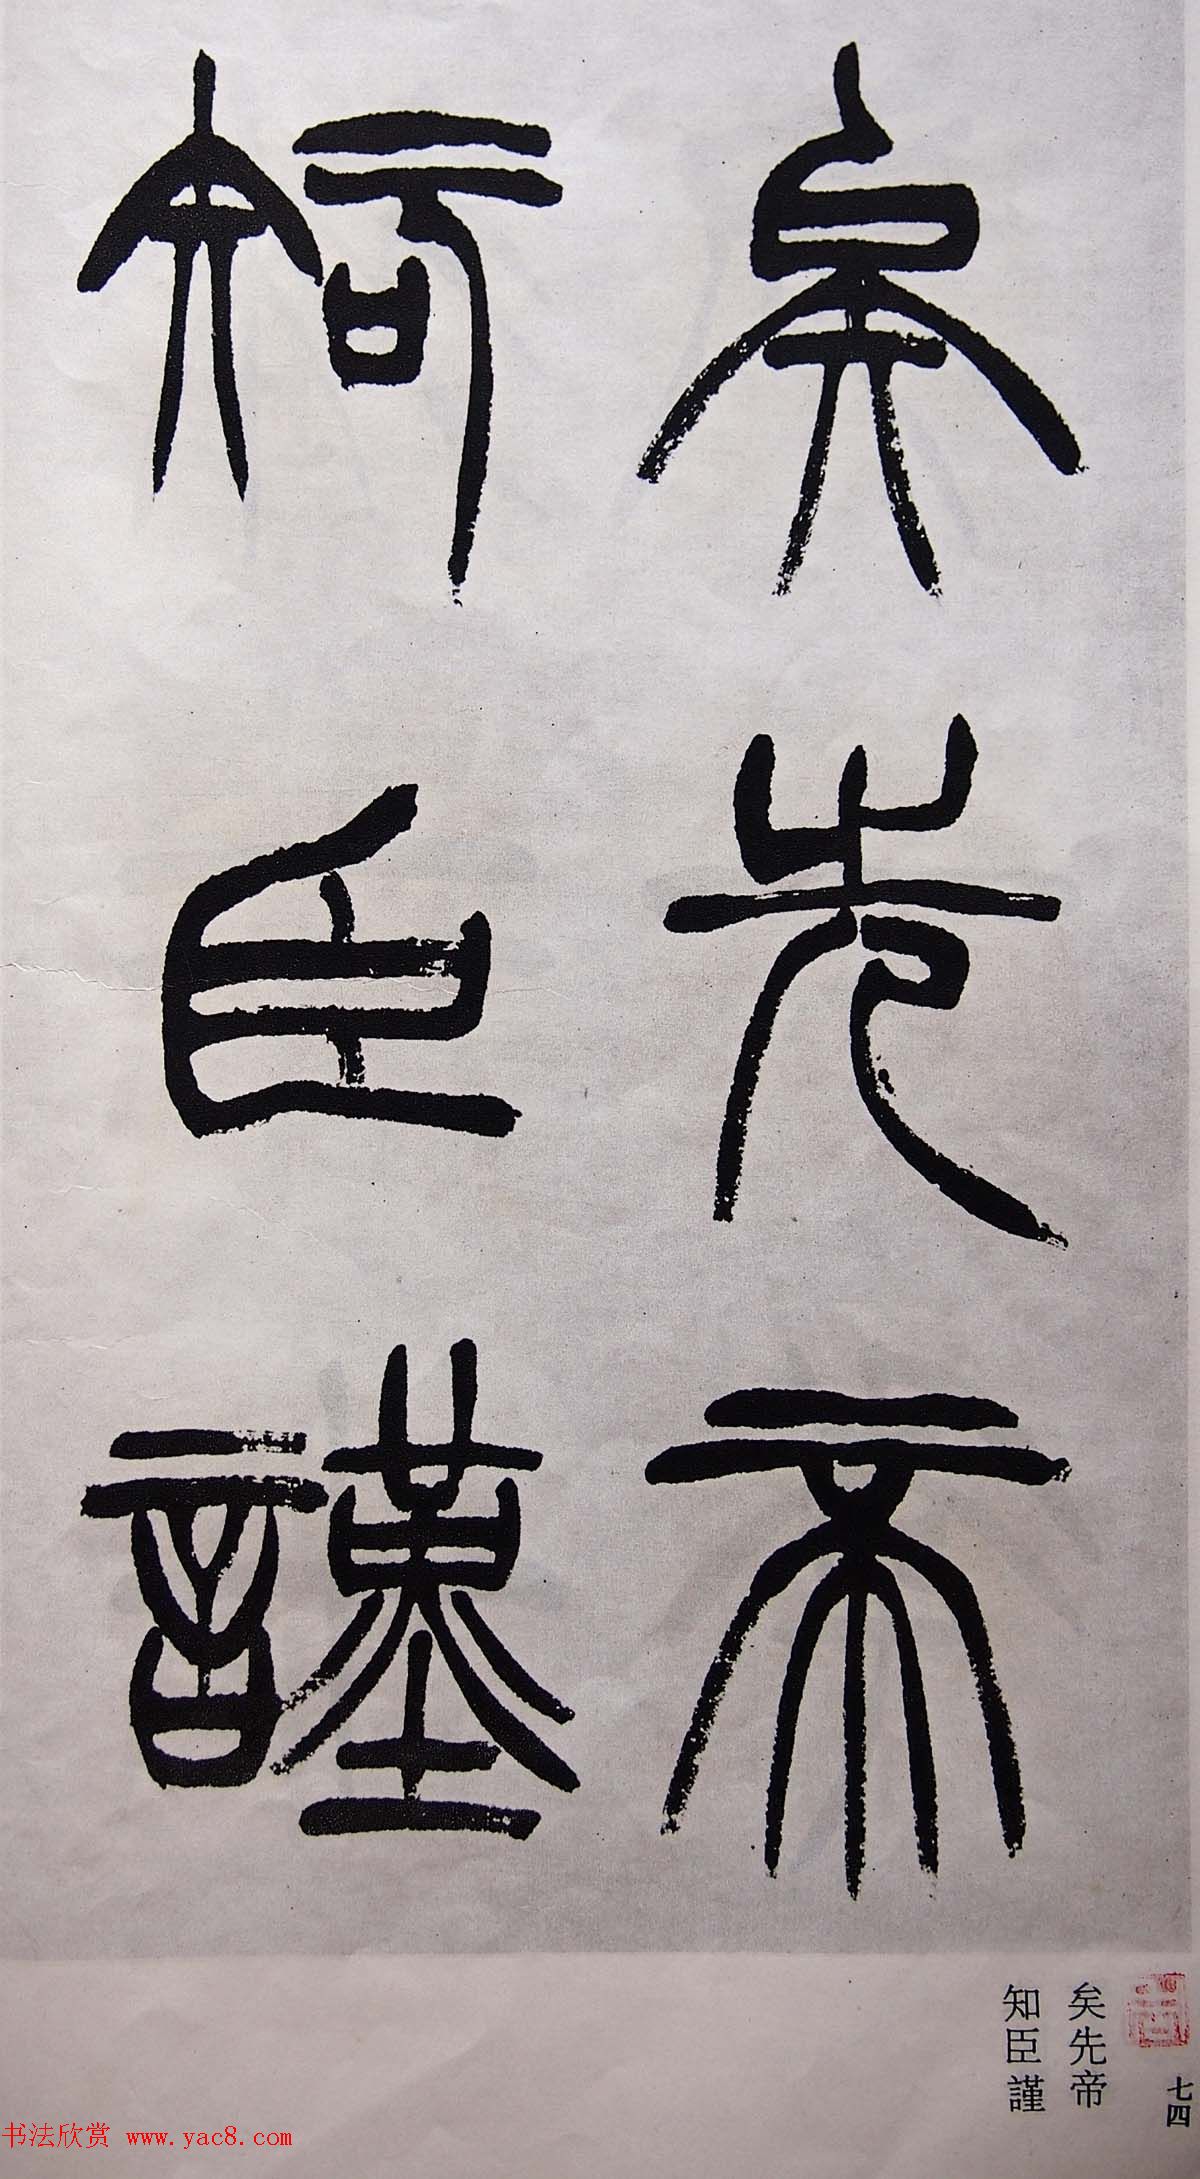 矣先帝
知臣謹
矣先帝
知臣謹
七四
书法欣赏 www.yac8.com